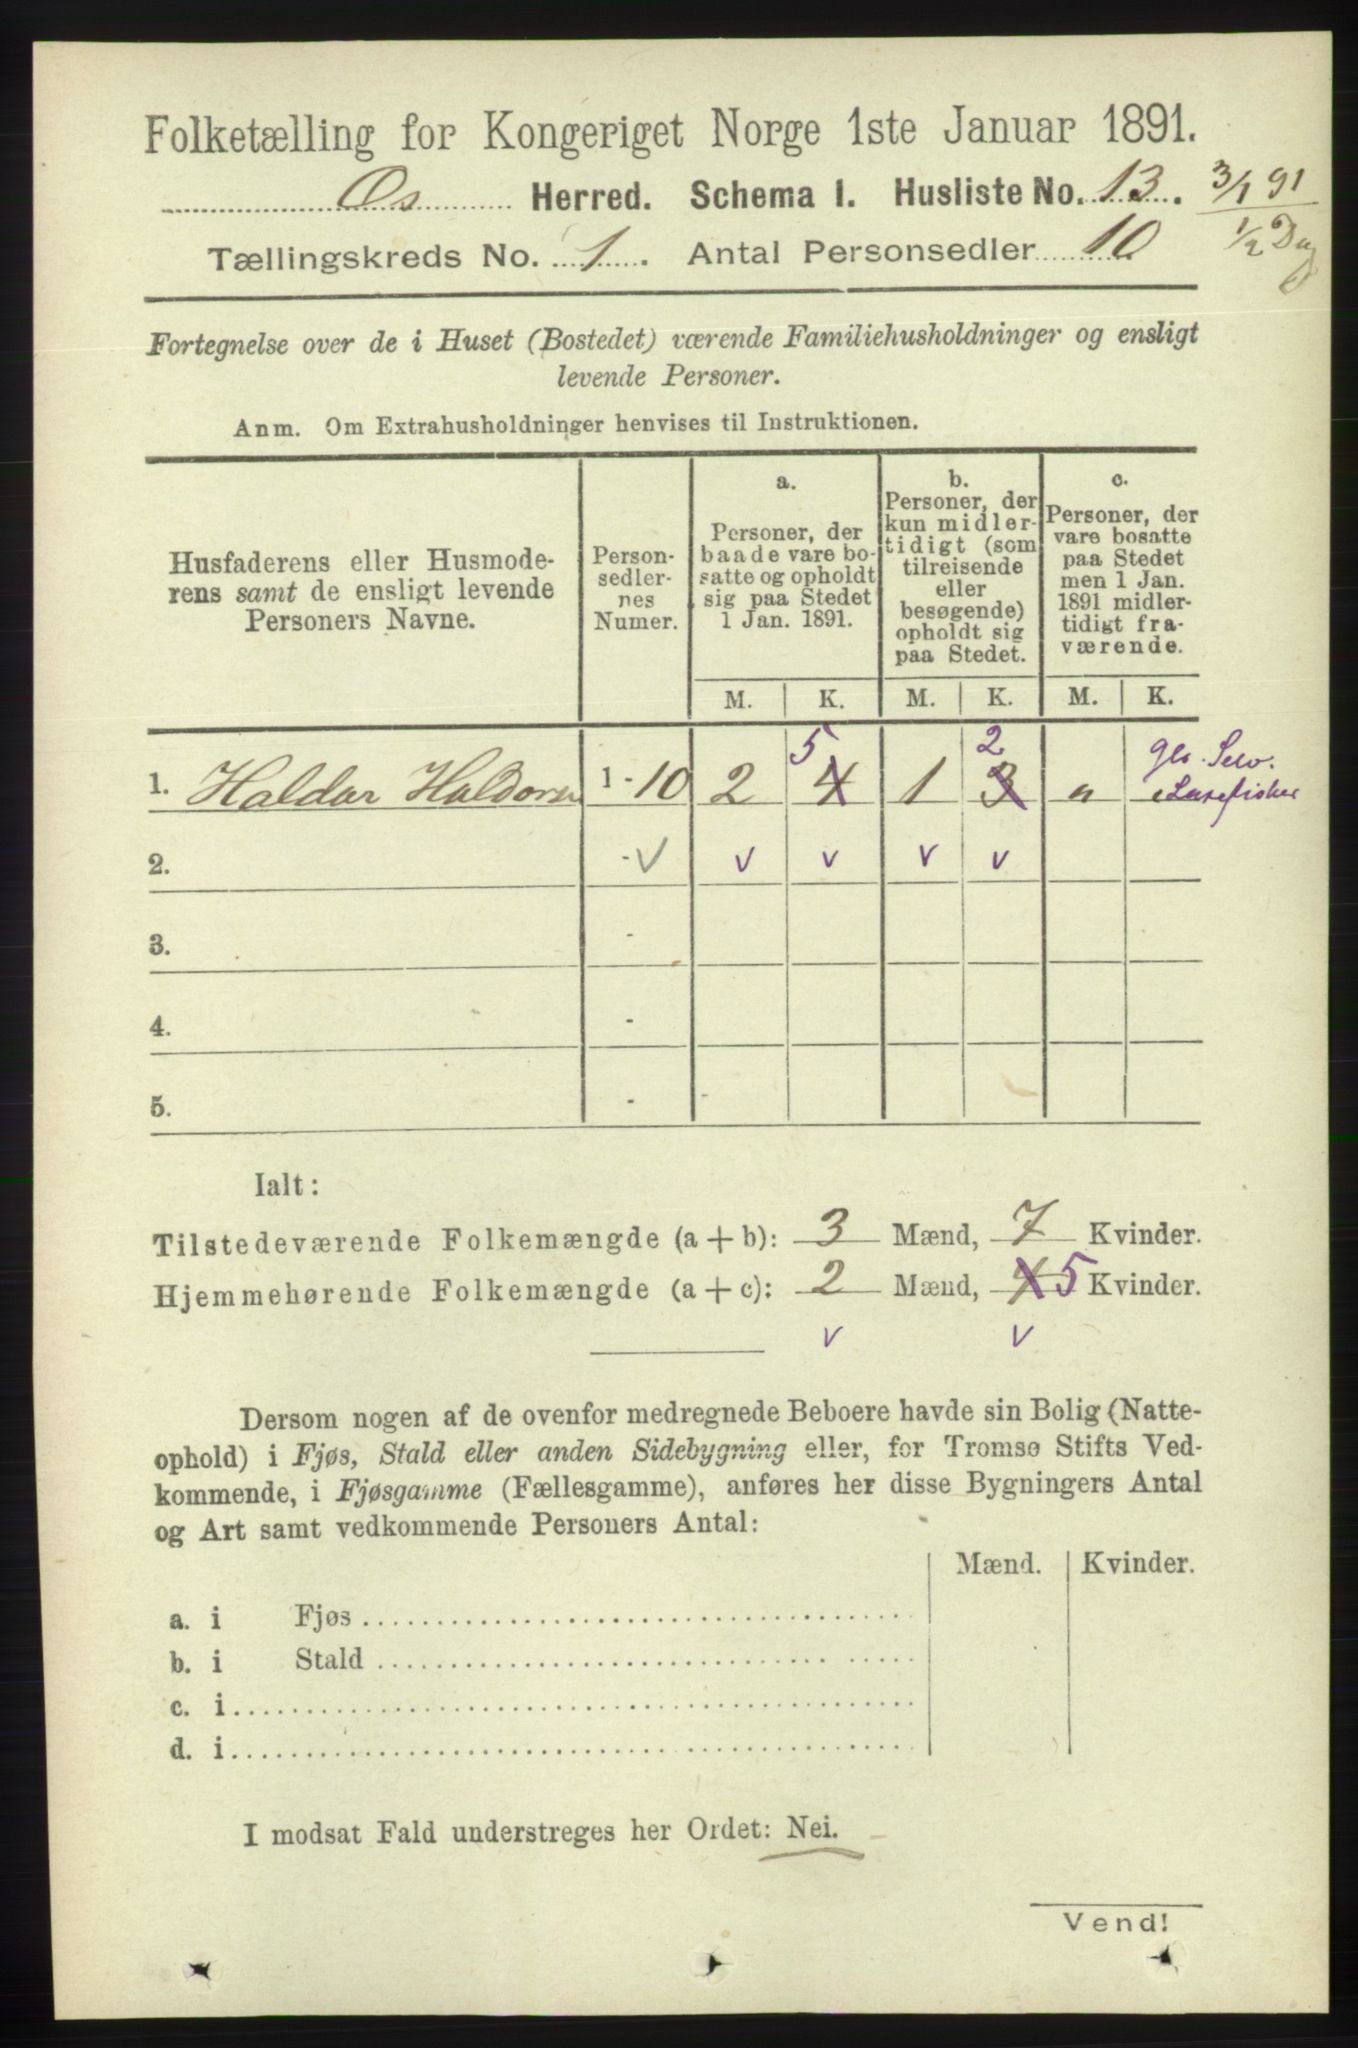 Folketælling for Kongeriget Norge 1ste Januar 1891.
Os Herred. Schema I. Husliste No. 13. 3/1 91
Tællingskreds No. 1. Antal Personsedler 10 1/2 Dag
Fortegnelse over de i Huset (Bostedet) værende Familiehusholdninger og ensligt
levende Personer.
Anm. Om Extrahusholdninger henvises til Instruktionen.
Husfaderens eller Husmode-
rens samt de ensligt levende
Personers Navne.
Person-
sedler-
nes
Numer.
a.
Personer, der
baade vare bo-
satte og opholdt
sig paa Stedet
1 Jan. 1891.
b.
Personer, der
kun midler-
tidigt (som
tilreisende
eller
besøgende)
opholdt sig
paa Stedet.
c.
Personer, der
vare bosatte
paa Stedet
men 1 Jan.
1891 midler-
tidigt fra-
værende.
M. K. M. K. M. K.
5 2
1. Haldor Haldorsen 1 - 10 2 4 1 3 "
2. - v v v v v
3. -
4. -
5. -
Ialt:
Tilstedeværende Folkemængde (a + b): 3 Mænd, 7 Kvinder.
Hjemmehørende Folkemængde (a + c): 2 Mænd, 4 5 Kvinder.
v v
Dersom nogen af de ovenfor medregnede Beboere havde sin Bolig (Natte-
ophold) i Fjøs, Stald eller anden Sidebygning eller, for Tromsø Stifts Ved-
kommende, i Fjøsgamme (Fællesgamme), anføres her disse Bygningers Antal
og Art samt vedkommende Personers Antal:
Mænd. Kvinder.
a. i Fjøs
b. i Stald
c. i
d. i
I modsat Fald understreges her Ordet: Nei.
Vend!